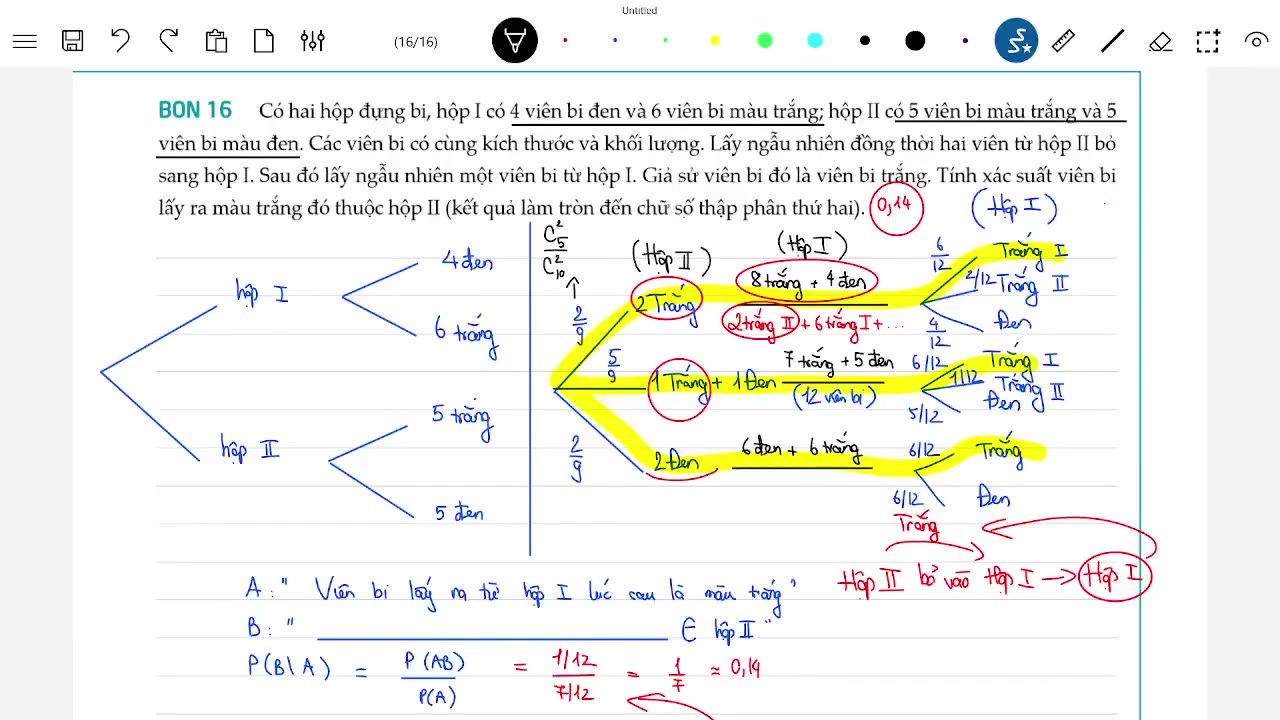 Untitled
(16/16)
BON 16 Có hai hộp đựng bi, hộp I có 4 viên bi đen và 6 viên bi màu trắng; hộp II có 5 viên bi màu trắng và 5
viên bi màu đen. Các viên bi có cùng kích thước và khối lượng. Lấy ngẫu nhiên đồng thời hai viên từ hộp II bỏ
sang hộp I. Sau đó lấy ngẫu nhiên một viên bi từ hộp I. Giả sử viên bi đó là viên bi trắng. Tính xác suất viên bi
lấy ra màu trắng đó thuộc hộp II (kết quả làm tròn đến chữ số thập phân thứ hai). 0,14
hộp I
4 đen
6 trắng
hộp II
5 trắng
5 đen
C²₅
C²₁₀
(Hộp II)
(Hộp I)
(Hộp I)
2/9
2 Trắng
8 trắng + 4 đen
2 trắng II + 6 trắng I + ...
6/12
Trắng I
2/12 Trắng II
4/12
Đen
5/9
1 Trắng + 1 Đen
7 trắng + 5 đen
(12 viên bi)
6/12
Trắng I
1/12
Trắng II
5/12
Đen
2/9
2 Đen
6 đen + 6 trắng
6/12
Trắng
6/12
Đen
Trắng
Hộp II bỏ vào Hộp I → Hộp I
A: " Viên bi lấy ra từ hộp I lúc sau là màu trắng"
B: " ∈ hộp II "
P(B\A) = P(AB) / P(A) = 1/12 / 7/12 = 1/7 ≈ 0,14